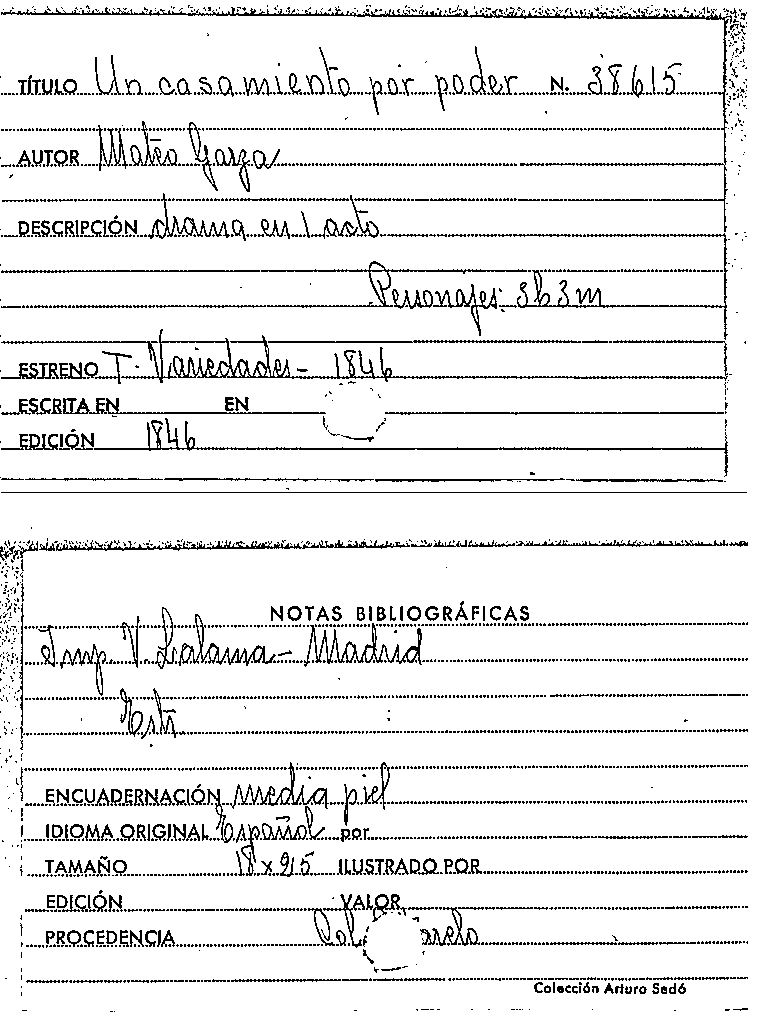 TÍTULO Un casamiento por poder N. 38615
AUTOR Mateo Garza
DESCRIPCIÓN drama en 1 acto
Personajes: 3h3m
ESTRENO T. Variedades - 1846
ESCRITA EN EN
EDICIÓN 1846
NOTAS BIBLIOGRÁFICAS
Imp. V. Lalama - Madrid
ENCUADERNACIÓN media piel
IDIOMA ORIGINAL Español por
TAMAÑO ILUSTRADO POR
EDICIÓN VALOR
PROCEDENCIA
Colección Arturo Sedó